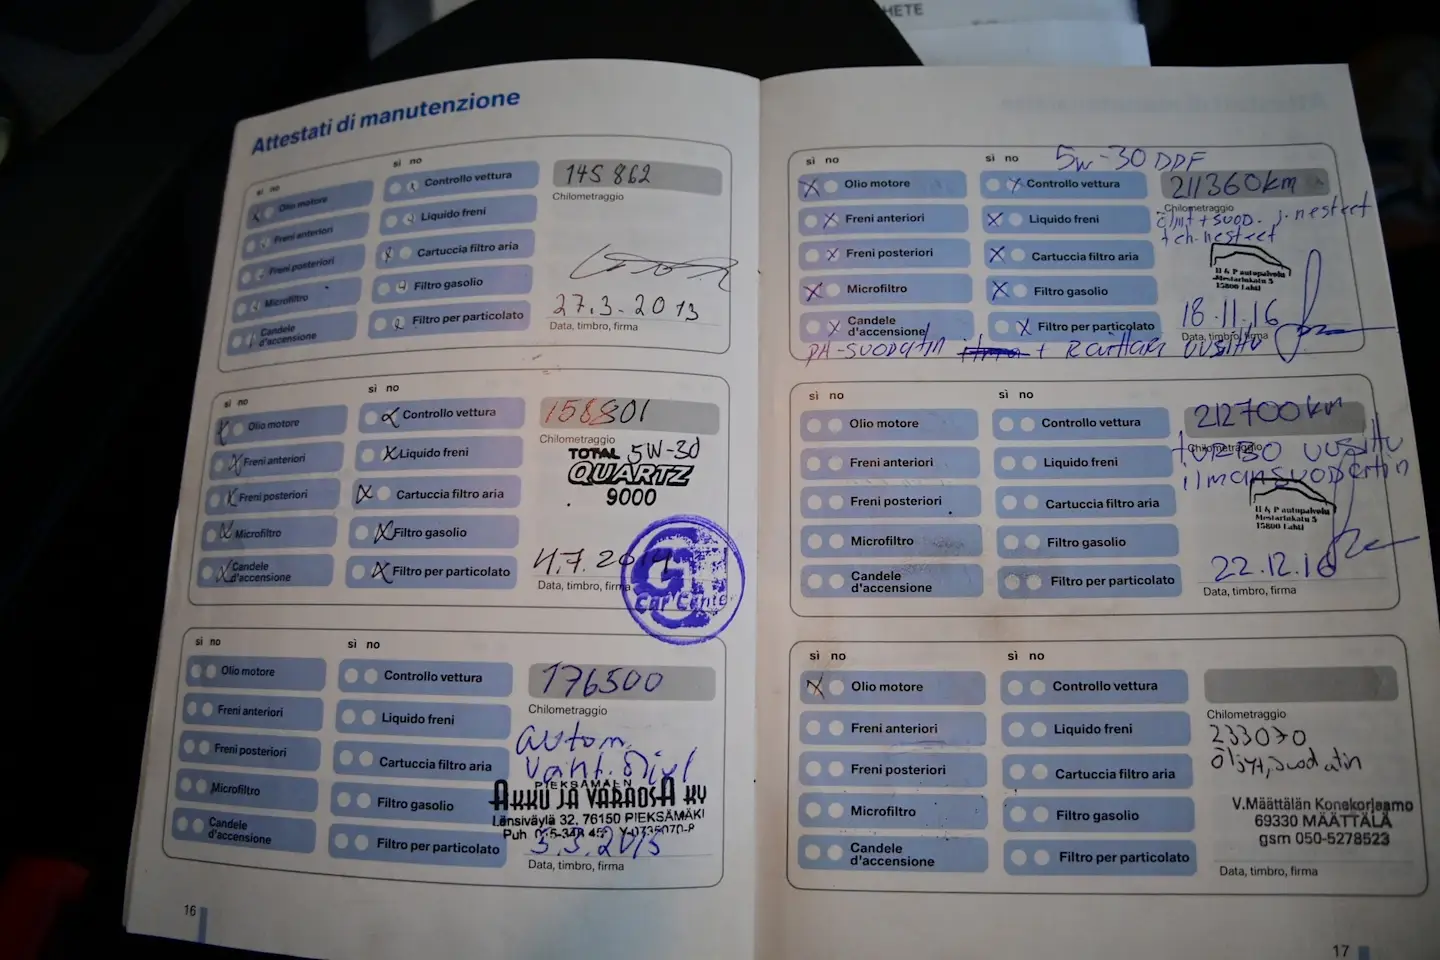 HETE
Attestati di manutenzione
sì no
sì no
Olio motore
Controllo vettura
145 862
Chilometraggio
Freni anteriori
Liquido freni
Freni posteriori
Cartuccia filtro aria
Microfiltro
Filtro gasolio
27.3.2013
Candele
d'accensione
Filtro per particolato
Data, timbro, firma
sì no
sì no
Olio motore
Controllo vettura
158801
Chilometraggio
Freni anteriori
Liquido freni
TOTAL 5W-30
QUARTZ
9000
Freni posteriori
Cartuccia filtro aria
Microfiltro
Filtro gasolio
4.7.2014
Candele
d'accensione
Filtro per particolato
Data, timbro, firma
G
Car Center
sì no
sì no
Olio motore
Controllo vettura
176500
Chilometraggio
Freni anteriori
Liquido freni
autom.
Freni posteriori
Cartuccia filtro aria
vaiht. öljyt
Microfiltro
Filtro gasolio
PIEKSÄMÄEN
AKKU JA VARAOSA KY
Länsiväylä 32, 76150 PIEKSÄMÄKI
Candele
d'accensione
Filtro per particolato
3.3.2015
Data, timbro, firma
16
sì no
sì no
5W-30 DPF
Olio motore
Controllo vettura
211360km
Chilometraggio
Freni anteriori
Liquido freni
ilm+suod. j.nesteet
+ch.nesteet
Freni posteriori
Cartuccia filtro aria
H & P autopalvelu
Mestarinkatu 5
15800 Lahti
Microfiltro
Filtro gasolio
18.11.16
Candele
d'accensione
Filtro per particolato
Data, timbro, firma
PA-SUODATIN + RAITTARI UUSITTU
sì no
sì no
Olio motore
Controllo vettura
212700km
Chilometraggio
Freni anteriori
Liquido freni
TURBO UUSITTU
ilmansuodartin
Freni posteriori
Cartuccia filtro aria
H & P autopalvelu
Mestarinkatu 5
15800 Lahti
Microfiltro
Filtro gasolio
22.12.16
Candele
d'accensione
Filtro per particolato
Data, timbro, firma
sì no
sì no
Olio motore
Controllo vettura
Chilometraggio
Freni anteriori
Liquido freni
233070
öljyt, suodatin
Freni posteriori
Cartuccia filtro aria
Microfiltro
Filtro gasolio
V.Määttälän Konekorjaamo
69330 MÄÄTTÄLÄ
gsm 050-5278523
Candele
d'accensione
Filtro per particolato
Data, timbro, firma
17